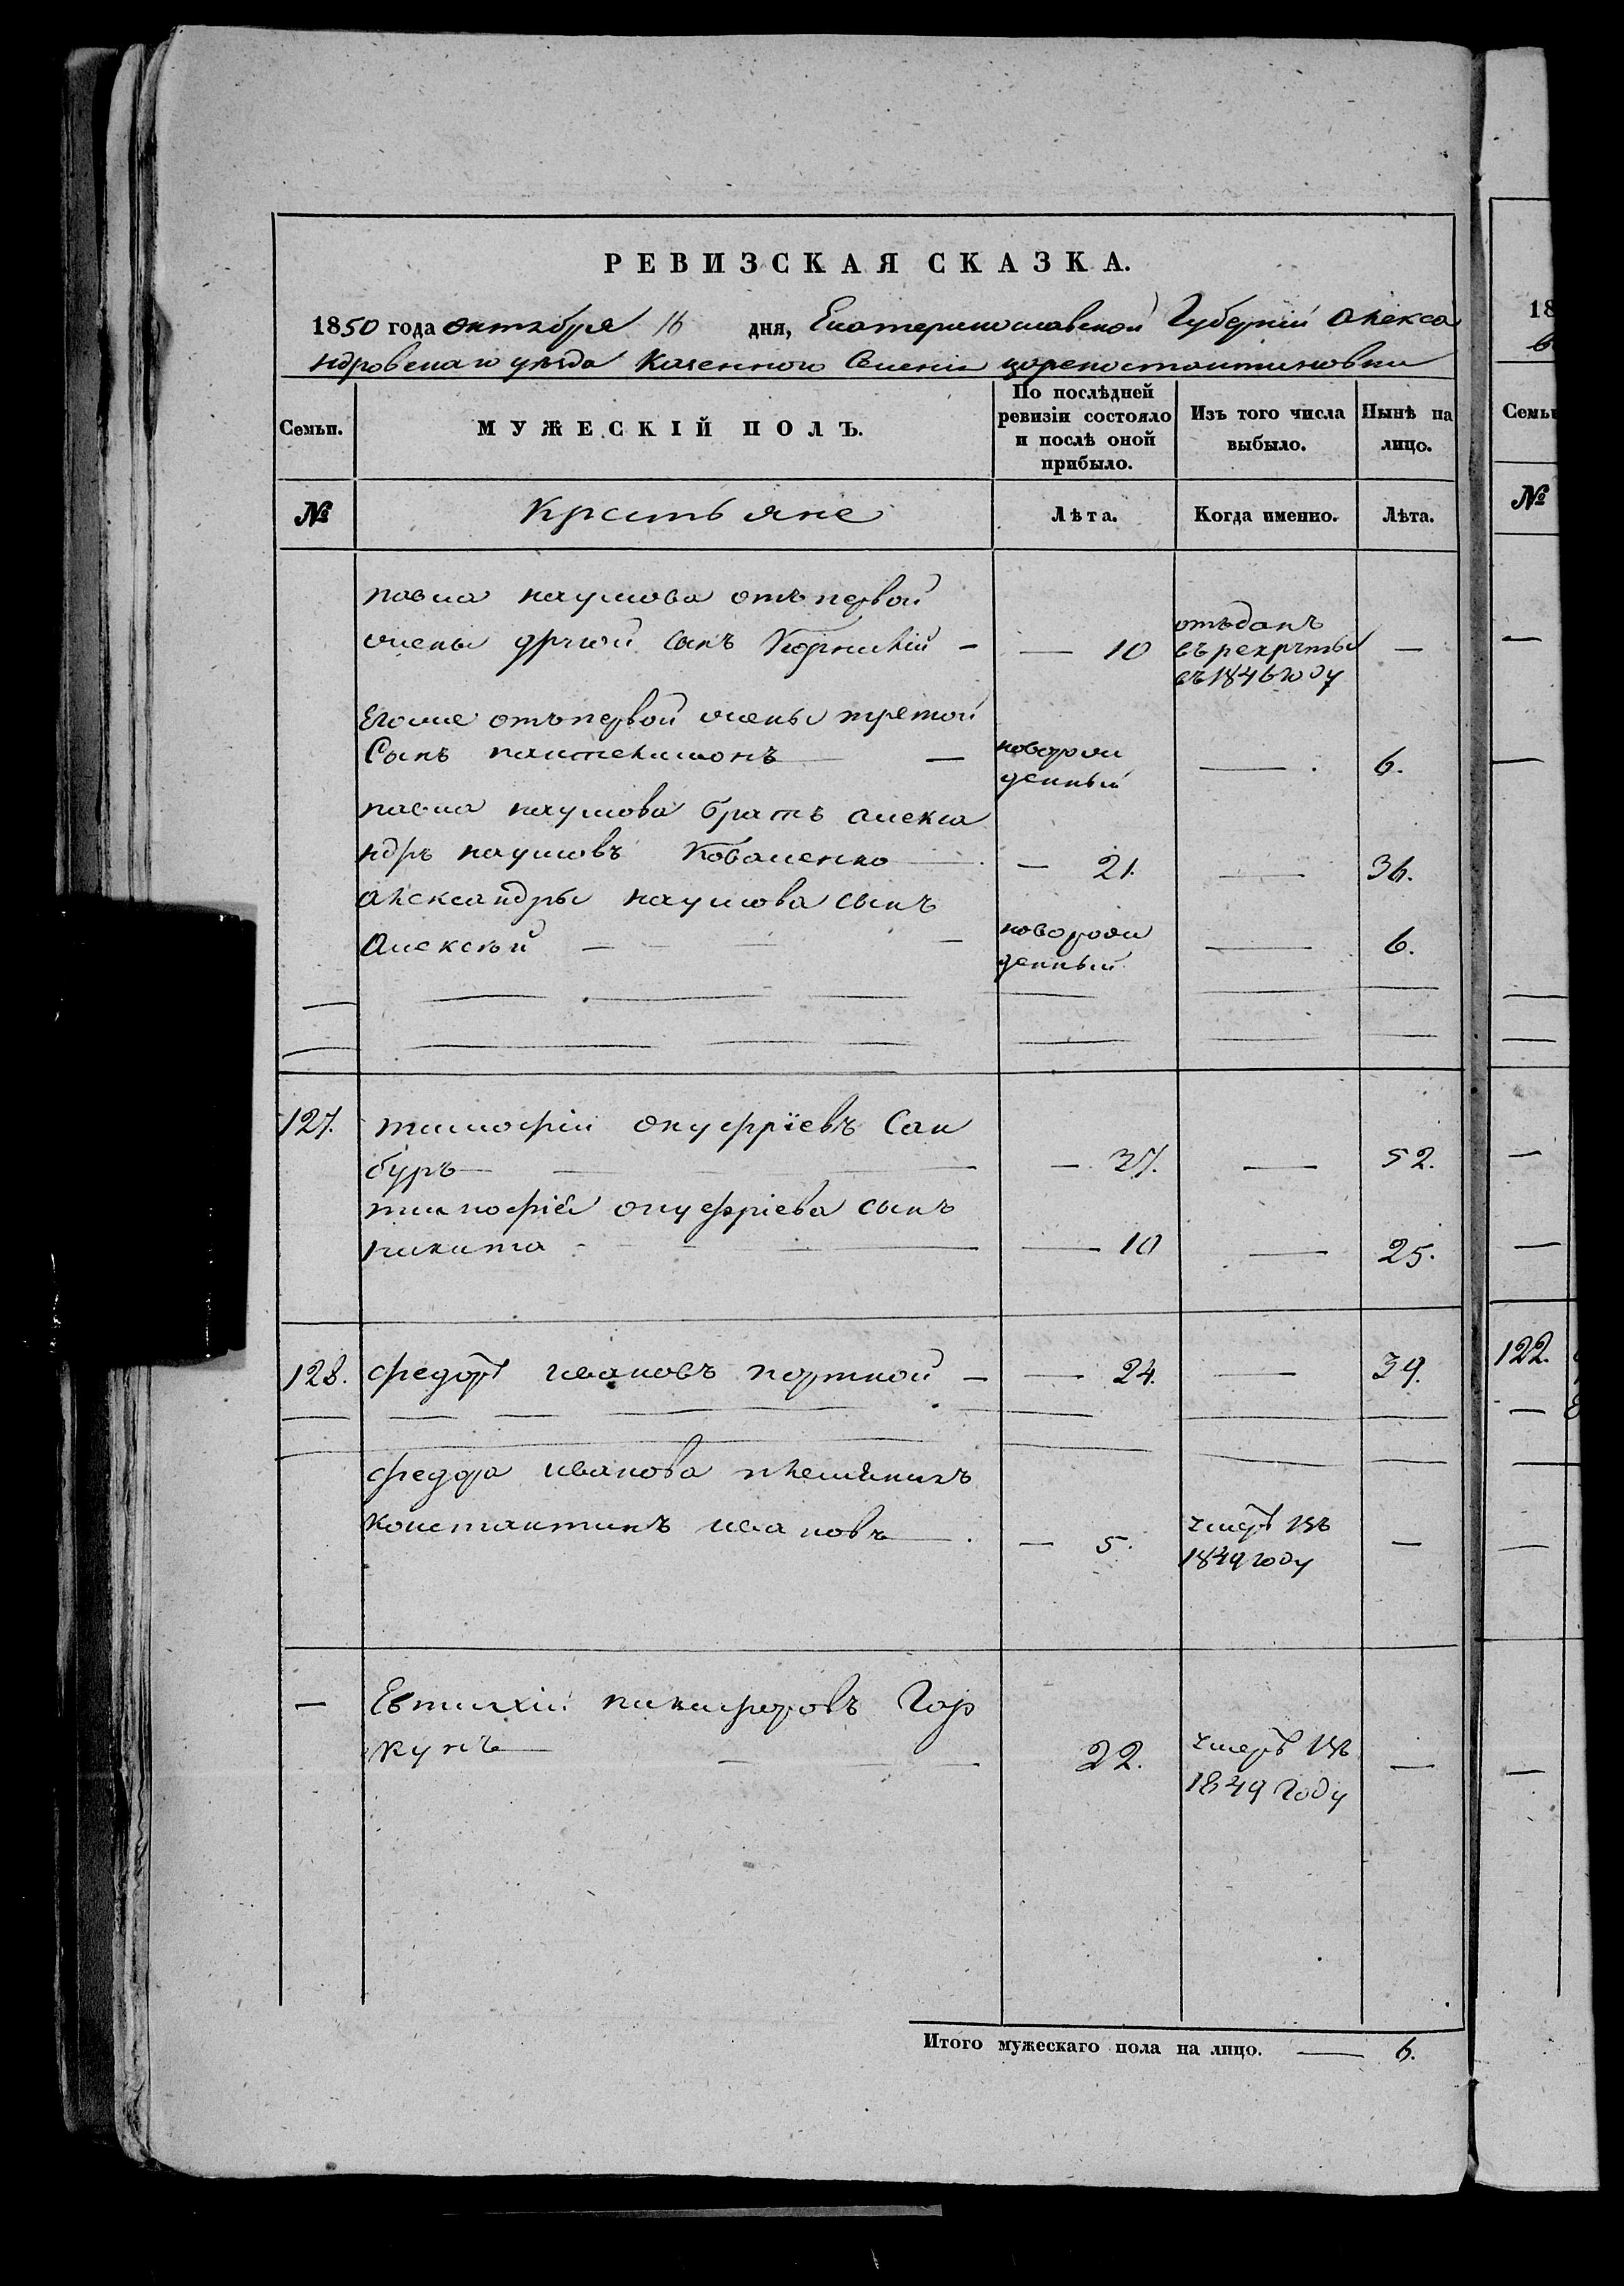 РЕВИЗСКАЯ СКАЗКА.
1850 года октября 16 дня, Екатеринославской Губерніи Алекса
ндровскаго уезда Казенного Селенія цареконстантиновки
Семьи.
МУЖЕСКІЙ ПОЛЪ.
По послѣдней ревизіи состояло и послѣ оной прибыло.
Изъ того числа выбыло.
Нынѣ на лицо.
№
Крестьяне
Лѣта.
Когда именно.
Лѣта.
павла наумова отъ первой
жены другой сынъ Корнилій — — 10 отъданъ въ рекруты въ 1846 году —
Егоже отъ первой жены третой
Сынъ пантелимонъ — новорож денный — 6.
павла наумова братъ алекса
ндръ наумовъ Коваленко — 21. — 36.
александры наумова сынъ
Алексѣй — новорож денный — 6.
127. тимофій онуфріевъ Сан
буръ — 37. — 52.
тимофія онуфріева сынъ
никита — 10 — 25.
128. федоръ ивановъ портной — — 24. — 39.
федора иванова племяникъ
константинъ ивановъ — 5. умеръ въ 1849 году —
— Евтихій никифоровъ Гор
кунъ — 22. умеръ въ 1849 году —
Итого мужескаго пола на лицо. — 6.
18
Семьи
№
122.